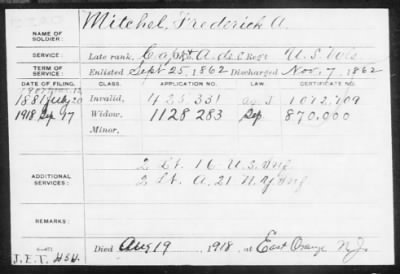 NAME OF SOLDIER: Mitchel, Frederick A.
SERVICE: Late rank, Capt & A.de C Regt U.S. Vols
TERM OF SERVICE: Enlisted Sept 25, 1862 Discharged Nov. 7, 1862
DATE OF FILING. CLASS. APPLICATION NO. CERTIFICATE NO.
1881 July 20 Invalid, 425 331 1072,709
1918 Sep 17 Widow, 1128 283 Sep 870.000
Minor,
ADDITIONAL SERVICES: 2 Lt. 16 U.S. Inf
2 Lt A. 21 N.Y. Inf
REMARKS:
Died Aug 19, 1918, at East Orange N.J.
J.E.T.